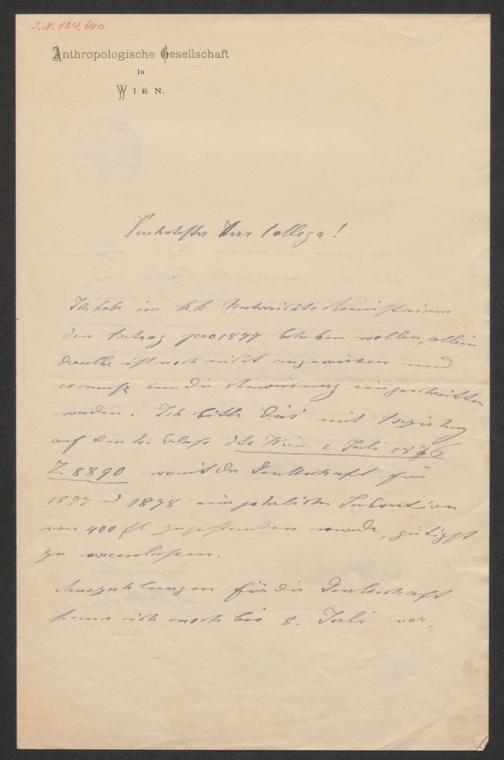 I.N. 124.640
Anthropologische Gesellschaft
in
WIEN.
Verehrtester Herr College!
Ich habe im k.k. Unterrichts Ministerium
den Betrag pro 1877 beheben wollen, allein
derselbe ist noch nicht angewiesen und
es muß um die Anweisung eingeschritten
werden. Ich bitte dies mit Beziehung
auf den h. Erlaß ddo Wien 2 Juli 1876
Z. 8890 womit der Gesellschaft für
1877 u 1878 eine jährliche Subvention
von 400 fl zugestanden wurde, gütigst
zu veranlassen.
Auszahlungen für die Gesellschaft
kann ich noch bis 8. Juli vor,